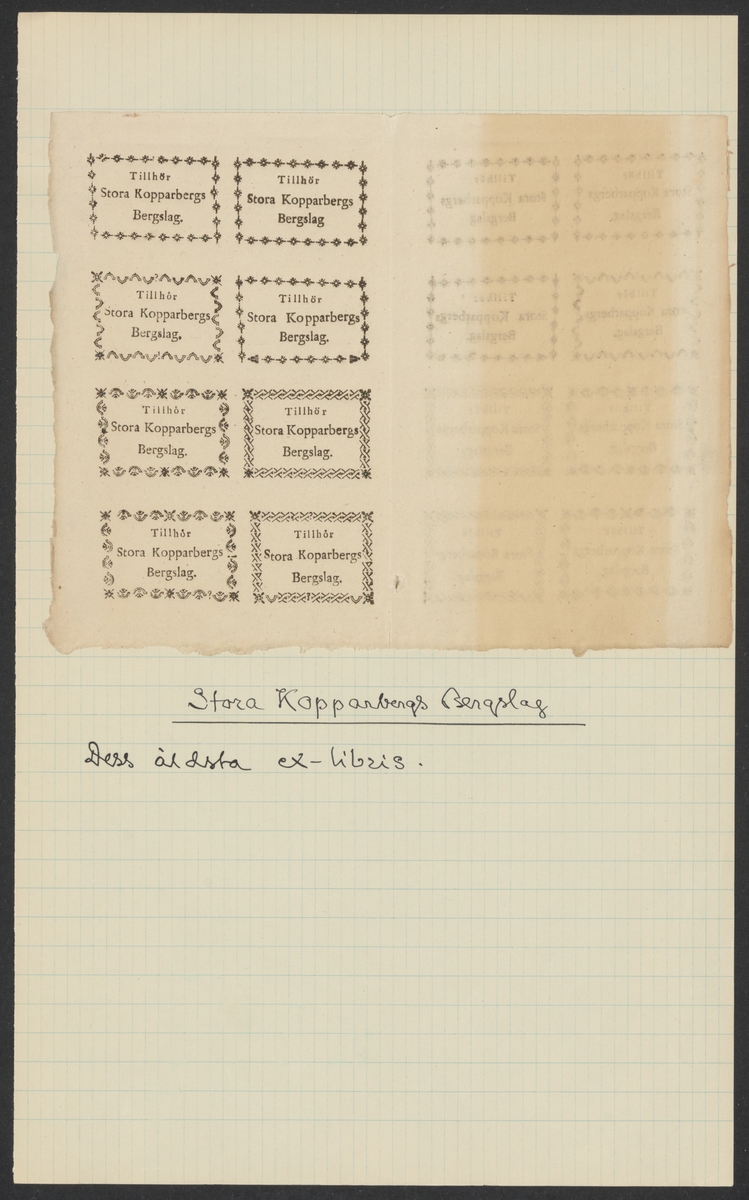 Tillhör
Stora Kopparbergs
Bergslag.
Tillhör
Stora Kopparbergs
Bergslag
Tillhör
Stora Kopparbergs
Bergslag.
Tillhör
Stora Kopparbergs
Bergslag.
Tillhör
Stora Kopparbergs
Bergslag.
Tillhör
Stora Kopparbergs
Bergslag.
Tillhör
Stora Kopparbergs
Bergslag.
Tillhör
Stora Koparbergs
Bergslag.
Stora Kopparbergs Bergslag
Dess äldsta ex-libris.